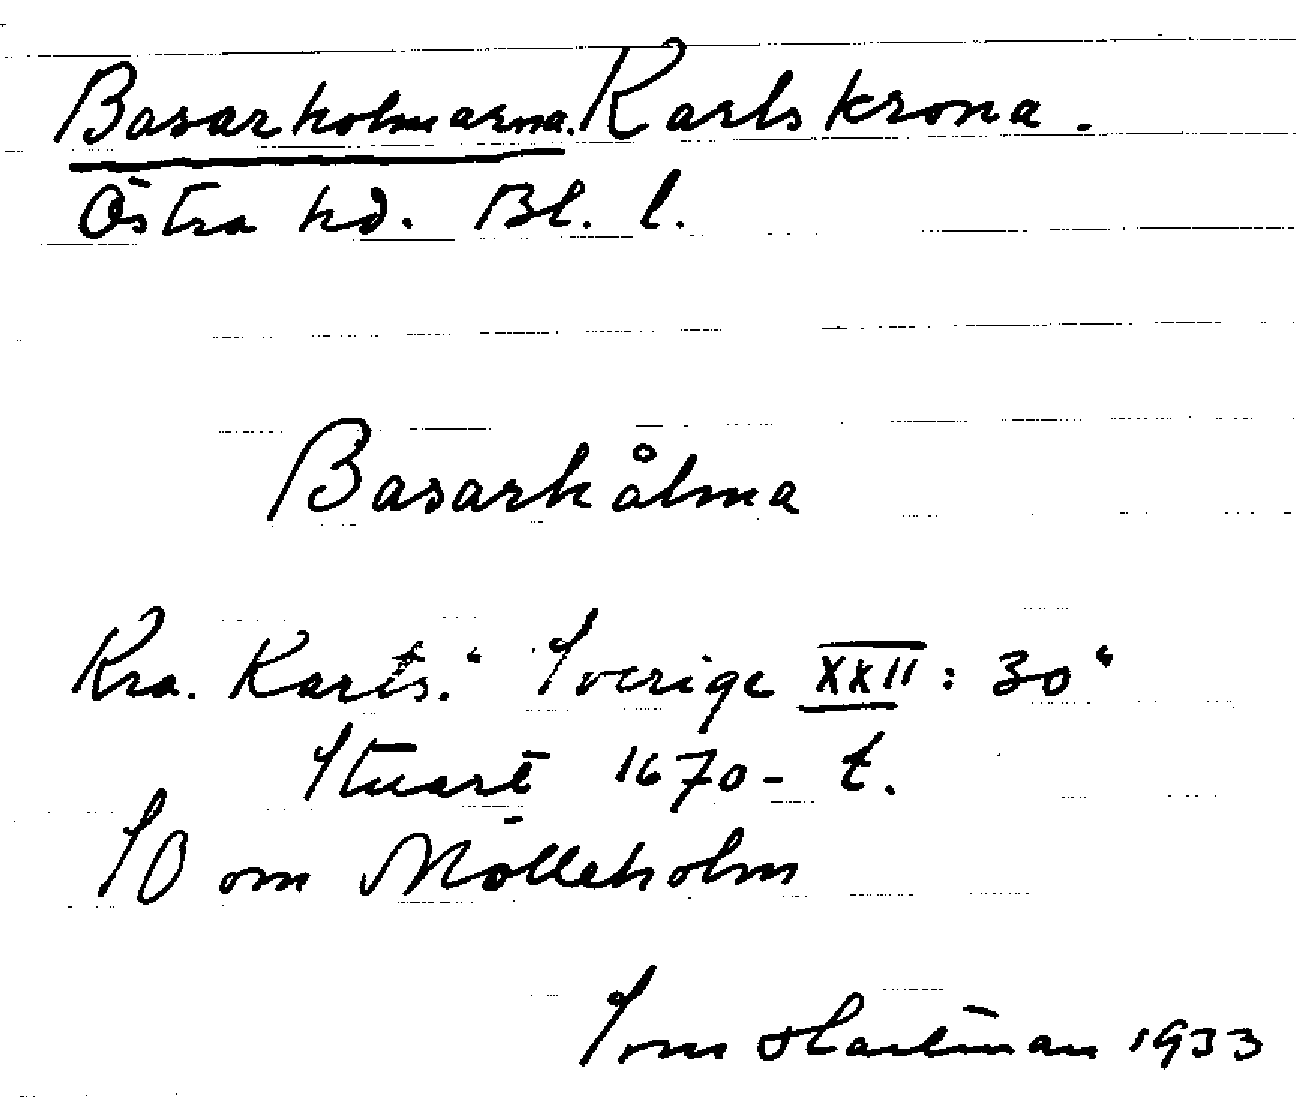 Basarholmarna. Karlskrona.
Östra hd. Bl. l.
Basarhålma
Kra. Karts. "Sverige XXII: 30"
Stuart 1670- t.
SO om Mölleholm
Tom Hartman 1933